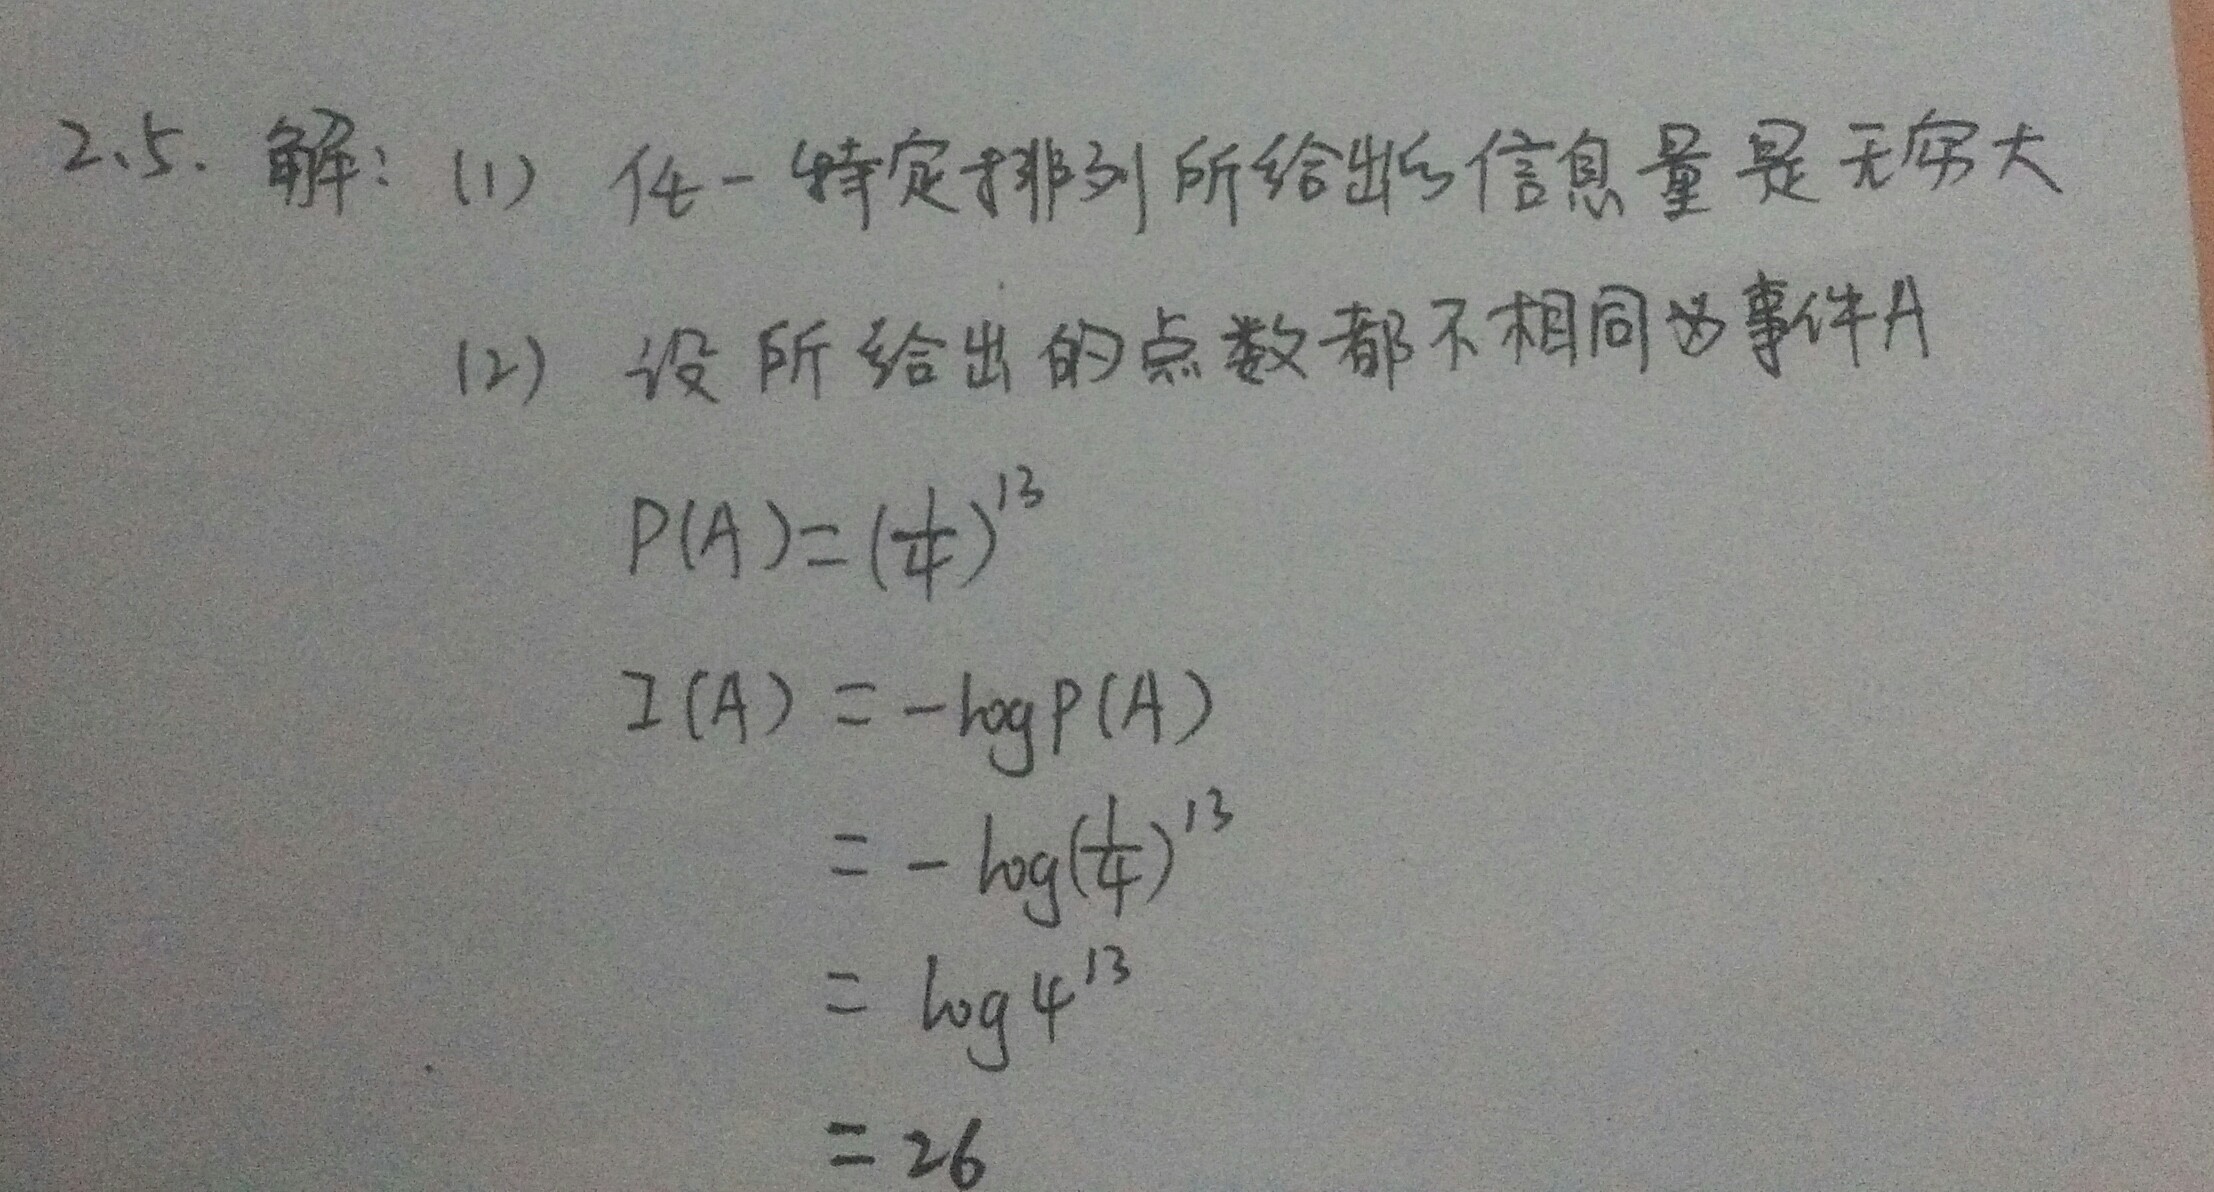 2.5. 解: (1) 任一特定排列所给出的信息量是无穷大
(2) 设所给出的点数都不相同为事件A
P(A)=(1/4)^13
I(A) = -log P(A)
= -log(1/4)^13
= log 4^13
= 26